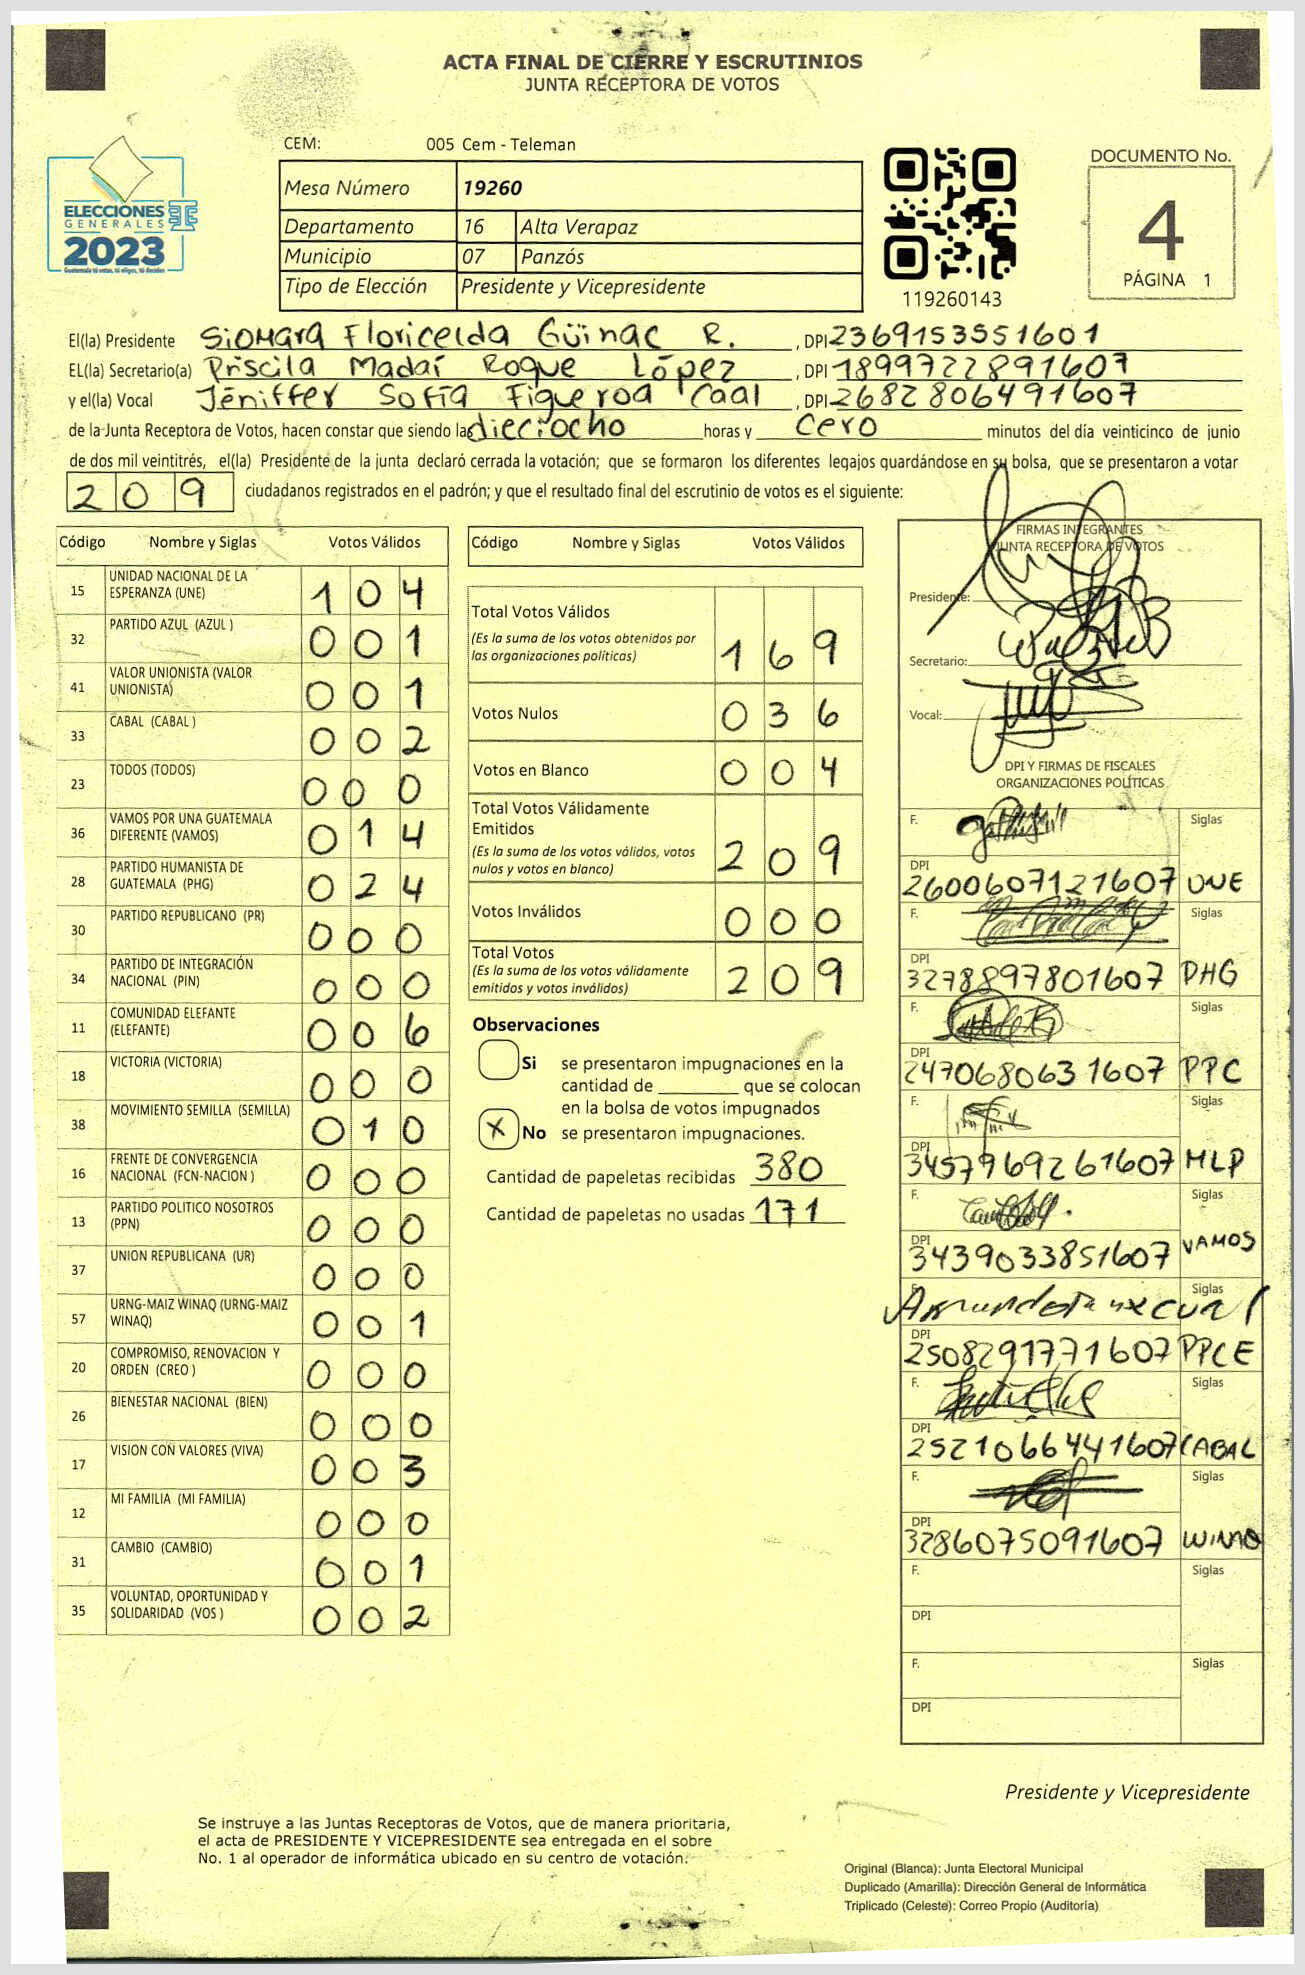 ACTA FINAL DE CIERRE Y ESCRUTINIOS
JUNTA RECEPTORA DE VOTOS
CEM: 005 Cem - Teleman
ELECCIONES
GENERALES
2023
Guatemala tú votas, tú eliges, tú decides
Mesa Número 19260
Departamento 16 Alta Verapaz
Municipio 07 Panzós
Tipo de Elección Presidente y Vicepresidente
119260143
DOCUMENTO No.
4
PÁGINA 1
El(la) Presidente Siomara Floricelda Güinac R. , DPI 2369153551601
EL(la) Secretario(a) Priscila Madaí Roque López , DPI 1899722891607
y el(la) Vocal Jéniffer Sofía Figueroa Caal , DPI 2682806491607
de la Junta Receptora de Votos, hacen constar que siendo las dieciocho horas y cero minutos del día veinticinco de junio
de dos mil veintitrés, el(la) Presidente de la junta declaró cerrada la votación; que se formaron los diferentes legajos guardándose en su bolsa, que se presentaron a votar
209 ciudadanos registrados en el padrón; y que el resultado final del escrutinio de votos es el siguiente:
Código Nombre y Siglas Votos Válidos
15 UNIDAD NACIONAL DE LA ESPERANZA (UNE) 104
32 PARTIDO AZUL (AZUL ) 001
41 VALOR UNIONISTA (VALOR UNIONISTA) 001
33 CABAL (CABAL ) 002
23 TODOS (TODOS) 000
36 VAMOS POR UNA GUATEMALA DIFERENTE (VAMOS) 014
28 PARTIDO HUMANISTA DE GUATEMALA (PHG) 024
30 PARTIDO REPUBLICANO (PR) 000
34 PARTIDO DE INTEGRACIÓN NACIONAL (PIN) 000
11 COMUNIDAD ELEFANTE (ELEFANTE) 006
18 VICTORIA (VICTORIA) 000
38 MOVIMIENTO SEMILLA (SEMILLA) 010
16 FRENTE DE CONVERGENCIA NACIONAL (FCN-NACION ) 000
13 PARTIDO POLITICO NOSOTROS (PPN) 000
37 UNION REPUBLICANA (UR) 000
57 URNG-MAIZ WINAQ (URNG-MAIZ WINAQ) 001
20 COMPROMISO, RENOVACION Y ORDEN (CREO ) 000
26 BIENESTAR NACIONAL (BIEN) 000
17 VISION CON VALORES (VIVA) 003
12 MI FAMILIA (MI FAMILIA) 000
31 CAMBIO (CAMBIO) 001
35 VOLUNTAD, OPORTUNIDAD Y SOLIDARIDAD (VOS ) 002
Código Nombre y Siglas Votos Válidos
Total Votos Válidos 169
(Es la suma de los votos obtenidos por
las organizaciones políticas)
Votos Nulos 036
Votos en Blanco 004
Total Votos Válidamente
Emitidos 209
(Es la suma de los votos válidos, votos
nulos y votos en blanco)
Votos Inválidos 000
Total Votos 209
(Es la suma de los votos válidamente
emitidos y votos inválidos)
Observaciones
Si se presentaron impugnaciones en la
cantidad de ________ que se colocan
en la bolsa de votos impugnados
X No se presentaron impugnaciones.
Cantidad de papeletas recibidas 380
Cantidad de papeletas no usadas 171
FIRMAS INTEGRANTES
JUNTA RECEPTORA DE VOTOS
Presidente:
Secretario:
Vocal:
DPI Y FIRMAS DE FISCALES
ORGANIZACIONES POLÍTICAS
F. Siglas
DPI 2600607121607 UNE
F. Siglas
DPI 3278897801607 PHG
F. Siglas
DPI 2470680631607 PPC
F. Siglas
DPI 3457969261607 MLP
F. Siglas
DPI 3439033851607 VAMOS
F. Siglas
DPI 2508291771607 PPCE
F. Siglas
DPI 2521066441607 CABAL
F. Siglas
DPI 3286075091607 WINAQ
F. Siglas
DPI
F. Siglas
DPI
Presidente y Vicepresidente
Se instruye a las Juntas Receptoras de Votos, que de manera prioritaria,
el acta de PRESIDENTE Y VICEPRESIDENTE sea entregada en el sobre
No. 1 al operador de informática ubicado en su centro de votación.
Original (Blanca): Junta Electoral Municipal
Duplicado (Amarilla): Dirección General de Informática
Triplicado (Celeste): Correo Propio (Auditoría)